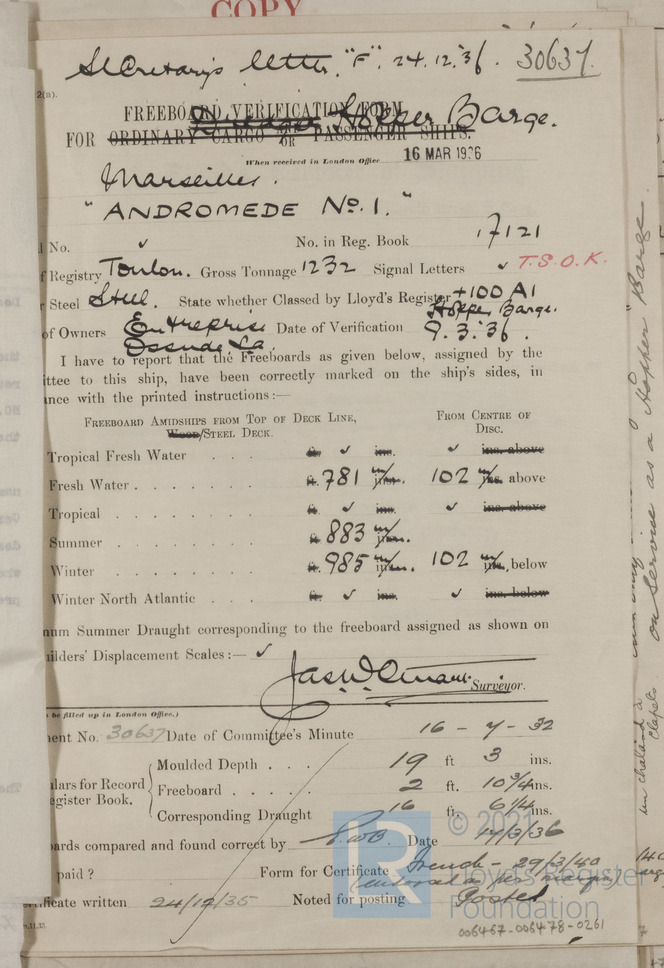 COPY
Secretary's letter. "F". 24.12.36. 30637.
2(n).
FREEBOARD VERIFICATION FORM Hopper Barge.
FOR ORDINARY CARGO OR PASSENGER SHIPS.
When received in London Office 16 MAR 1936
Marseilles.
"ANDROMEDE No. 1."
l No. ✓ No. in Reg. Book 17121
f Registry Toulon. Gross Tonnage 1232 Signal Letters ✓ T.S.O.K.
r Steel Steel. State whether Classed by Lloyd's Register +100 A1
Hopper Barge.
of Owners Entreprise Date of Verification 9.3.36.
I have to report that the Freeboards as given below, assigned by the
ittee to this ship, have been correctly marked on the ship's sides, in
nce with the printed instructions:—
FREEBOARD AMIDSHIPS FROM TOP OF DECK LINE, FROM CENTRE OF
WOOD/STEEL DECK. DISC.
Tropical Fresh Water . . . ft. ✓ ins. ✓ ins. above
Fresh Water . . . . . . . ft. 781 m/m. 102 m/m. above
Tropical . . . . . . . ft. ✓ ins. ✓ ins. above
Summer . . . . . . . ft. 883 m/m.
Winter . . . . . . . ft. 985 m/m. 102 m/m, below
Winter North Atlantic . . . ft. ✓ ins. ✓ ins. below
num Summer Draught corresponding to the freeboard assigned as shown on
uilders' Displacement Scales:— ✓
Surveyor.
be filled up in London Office.)
ent No. 30637 Date of Committee's Minute 16 - 7 - 32
Moulded Depth . . . 19 ft 3 ins.
lars for Record
Freeboard . . . . . 2 ft. 10 3/4 ins.
egister Book.
Corresponding Draught 16 ft. 6 1/4 ins.
ards compared and found correct by Date 17/3/36
paid ? Form for Certificate French - 29/3/40
ificate written 24/12/35 Noted for posting Posted
© 2021
Lloyd's Register
Foundation
006467-006478-0261
on Service as a "Hopper Barge